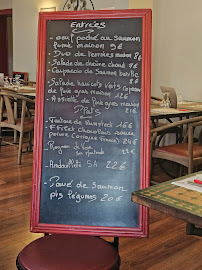 Entrées
- oeuf poché au saumon
fumé maison 9 €
- Duo de terrines maison 8 €
- Salade de chèvre chaud 9 €
- Carpaccio de Saumon basilic
8 €
- Salade haricots verts copeaux
de foie gras maison 12 €
- Assiette de foie gras maison
Plats
- Tartare de Rumsteck 16 €
- Filet Charolais sauce
poivre
22 €
Rognon de Veau
22 €
Andouillette 5A
22 €
- Pavé de Saumon
pts légumes 20 €